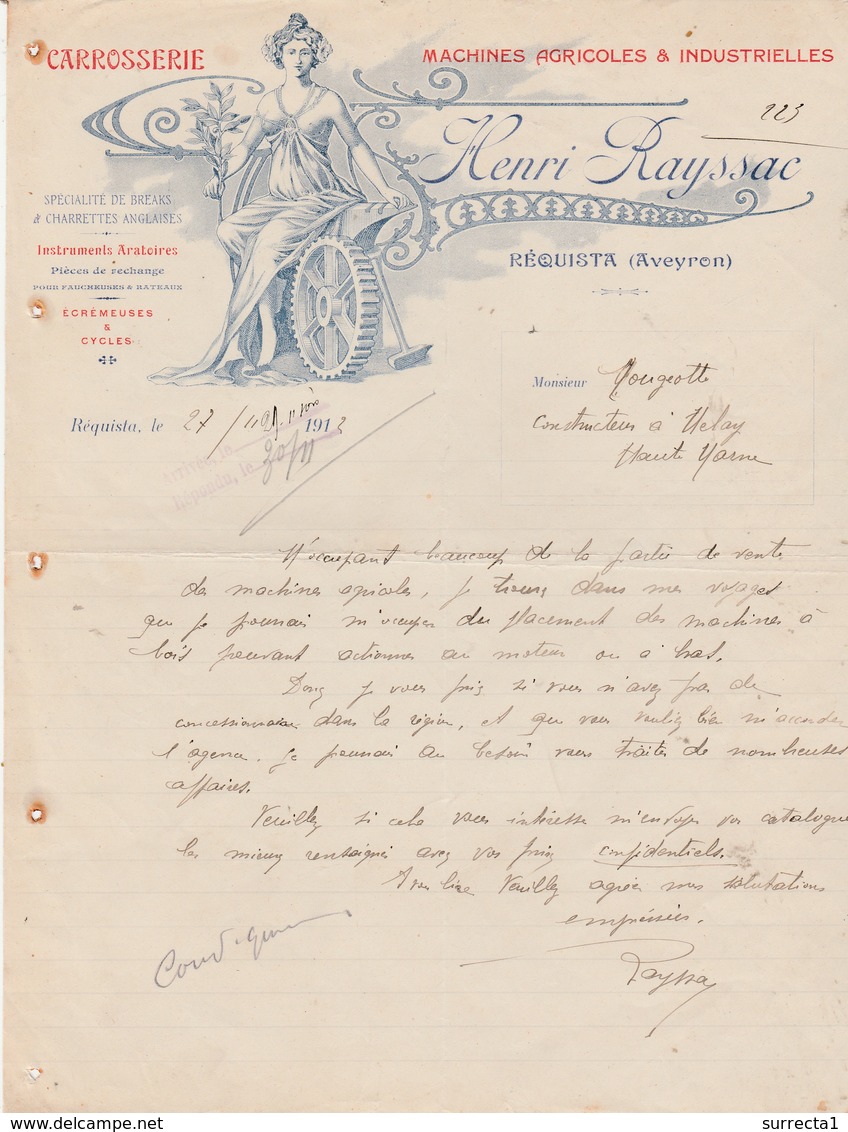 CARROSSERIE
MACHINES AGRICOLES & INDUSTRIELLES
223
Henri Rayssac
SPÉCIALITÉ DE BREAKS
& CHARRETTES ANGLAISES
Instruments Aratoires
Pièces de rechange
POUR FAUCHEUSES & RATEAUX
ÉCRÉMEUSES
&
CYCLES
RÉQUISTA (Aveyron)
Monsieur Mougeotte
Constructeur à Velay
Haute Marne
Réquista, le 27/11 1913
Arrivée, le
Répondu, le 30/11
M'occupant beaucoup de la partie de vente
des machines agricoles, je trouve dans mes voyages
que je pourrai m'occuper du placement des machines à
bois pouvant actionner au moteur ou à bras.
Donc je vous prie si vous n'avez pas de
concessionnaire dans la région, et que vous vouliez bien m'accorder
l'agence. Je pourrai au besoin vous traiter de nombreuses
affaires.
Veuillez si cela vous intéresse m'envoyer vos catalogues
les mieux renseignés avec vos prix confidentiels.
A vous lire Veuillez agréer mes salutations
empréssées.
Rayssac
delcampe.net
surrecta1